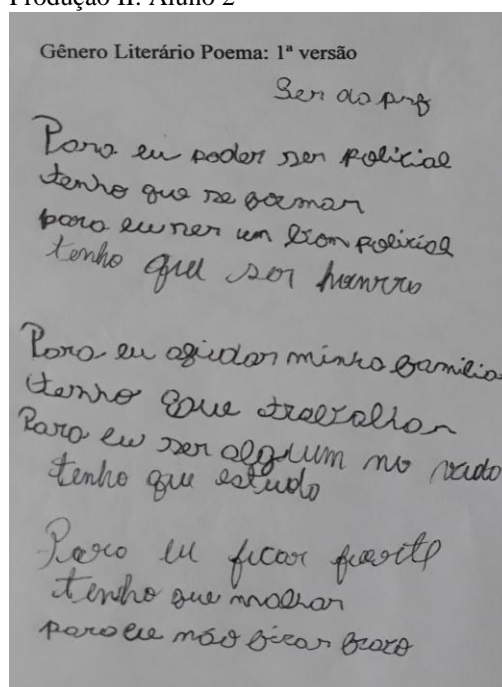 Produção II: Aluno 2
Gênero Literário Poema: 1ª versão
Ser da prf
Para eu poder ser policial
tenho que se formar
para eu ser um bom policial
tenho que ser
Para eu agudar minha familia
tenho que trabalhar
Para eu ser algum na vida
tenho que estudo
Para eu ficar forte
tenho que malhar
para eu não ficar fraco